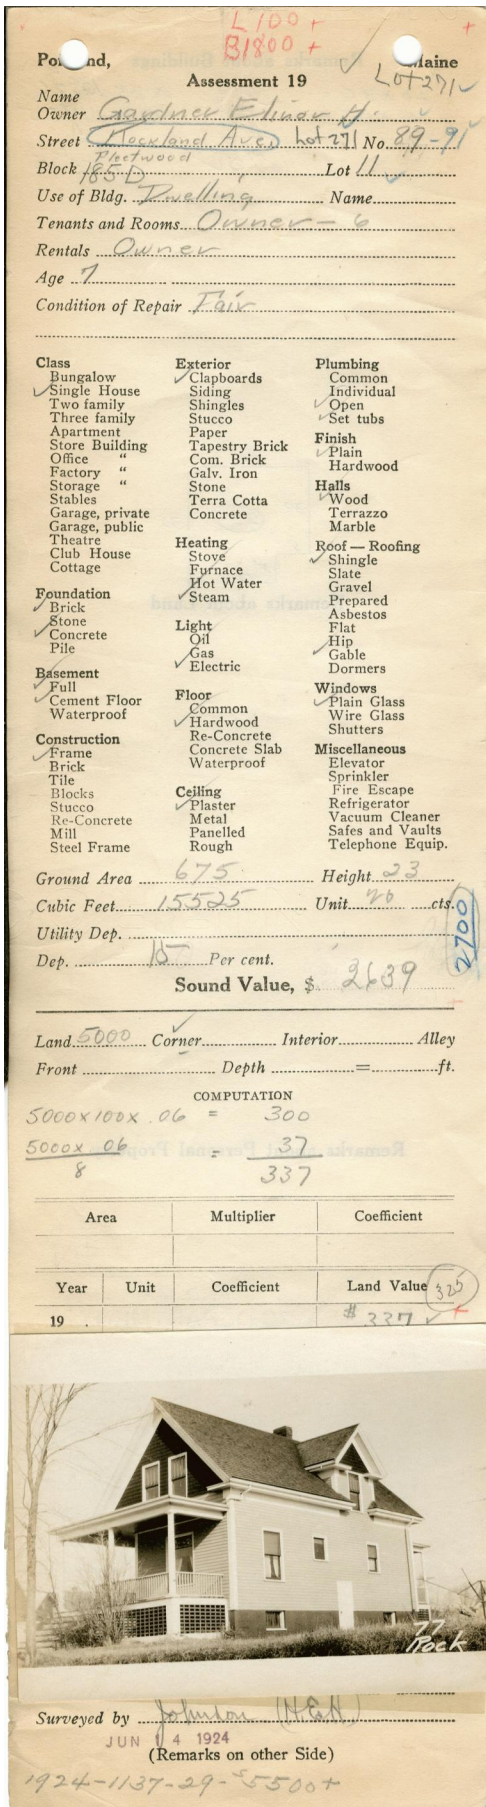 L 100 +
B 1800 +
Portland, Maine
Assessment 19
Lot 271
Name
Owner Gardner Elinor H.
Street Rockland Ave. Lot 271 No. 89-91
Fleetwood
Block 185-D Lot 11
Use of Bldg. Dwelling Name
Tenants and Rooms Owner - 6
Rentals Owner
Age 7
Condition of Repair Fair
Class
Bungalow
Single House
Two family
Three family
Apartment
Store Building
Office "
Factory "
Storage "
Stables
Garage, private
Garage, public
Theatre
Club House
Cottage
Foundation
Brick
Stone
Concrete
Pile
Basement
Full
Cement Floor
Waterproof
Construction
Frame
Brick
Tile
Blocks
Stucco
Re-Concrete
Mill
Steel Frame
Exterior
Clapboards
Siding
Shingles
Stucco
Paper
Tapestry Brick
Com. Brick
Galv. Iron
Stone
Terra Cotta
Concrete
Heating
Stove
Furnace
Hot Water
Steam
Light
Oil
Gas
Electric
Floor
Common
Hardwood
Re-Concrete
Concrete Slab
Waterproof
Ceiling
Plaster
Metal
Panelled
Rough
Plumbing
Common
Individual
Open
Set tubs
Finish
Plain
Hardwood
Halls
Wood
Terrazzo
Marble
Roof — Roofing
Shingle
Slate
Gravel
Prepared
Asbestos
Flat
Hip
Gable
Dormers
Windows
Plain Glass
Wire Glass
Shutters
Miscellaneous
Elevator
Sprinkler
Fire Escape
Refrigerator
Vacuum Cleaner
Safes and Vaults
Telephone Equip.
Ground Area 675 Height 23
Cubic Feet 15525 Unit 20 cts.
2700
Utility Dep.
Dep. 15 Per cent.
Sound Value, $ 2639
Land 5000 Corner Interior Alley
Front Depth = ft.
COMPUTATION
5000 x 100 x .06 = 300
5000 x .06 = 37
8 337
Area Multiplier Coefficient
Year Unit Coefficient Land Value 325
19 $ 337
77
Rock
Surveyed by Johnson (H.E.H)
JUN 14 1924
(Remarks on other Side)
1924-1137-29-$5500+